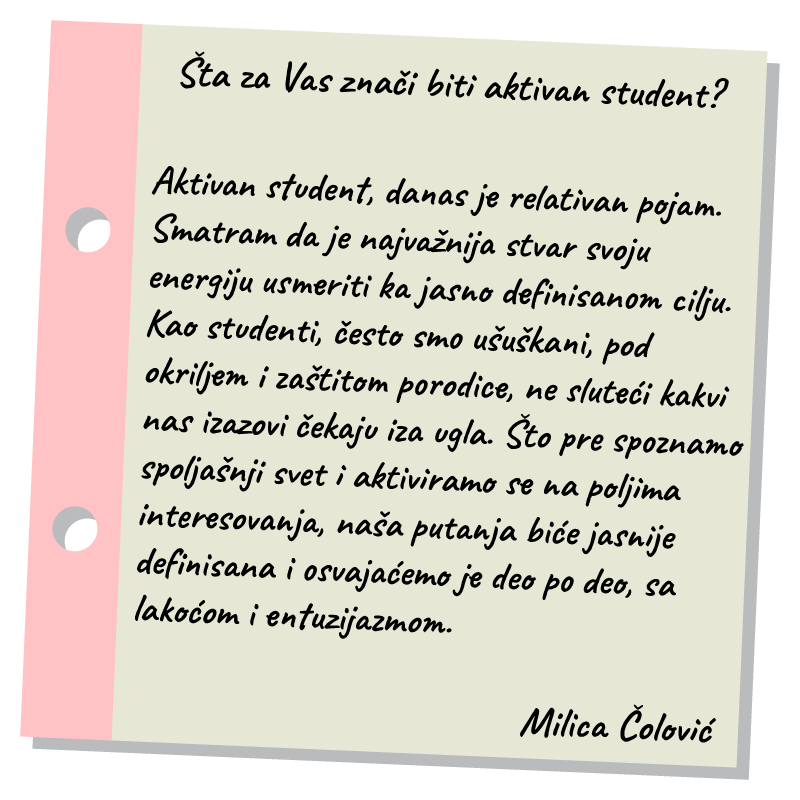 Šta za Vas znači biti aktivan student?
Aktivan student, danas je relativan pojam.
Smatram da je najvažnija stvar svoju
energiju usmeriti ka jasno definisanom cilju.
Kao studenti, često smo ušuškani, pod
okriljem i zaštitom porodice, ne sluteći kakvi
nas izazovi čekaju iza ugla. Što pre spoznamo
spoljašnji svet i aktiviramo se na poljima
interesovanja, naša putanja biće jasnije
definisana i osvajaćemo je deo po deo, sa
lakoćom i entuzijazmom.
Milica Čolović